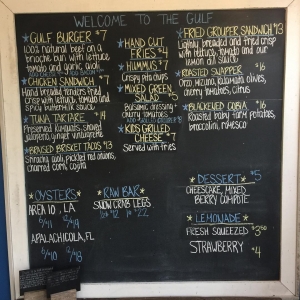 WELCOME TO THE GULF
GULF BURGER $7
100% natural beef on a
brioche bun with lettuce
tomato and garlic aioli
ADD CHEESE $1 ADD BACON $1
CHICKEN SANDWICH $7
Hand breaded tenders fried
crisp with lettuce, tomato and
spicy buttermilk sauce
TUNA TARTARE $14
Preserved kumquats, shaved
jalapeño, ginger vinaigrette
BRAISED BRISKET TACOS $13
Sriracha aioli, pickled red onions,
charred corn, cotija
HAND CUT
FRIES $4
HUMMUS $7
Crispy pita chips
MIXED GREEN
SALAD $5
Balsamic dressing
cherry tomatoes
KIDS GRILLED
CHEESE $7
Served with fries
FRIED GROUPER SANDWICH $13
Lightly breaded and fried crisp
with lettuce, tomato and our
lemon aioli sauce
ROASTED SNAPPER $16
Orzo mizuna, kalamata olives,
cherry tomatoes, citrus
BLACKENED COBIA $16
Roasted baby farm potatoes,
broccolini, romesco
OYSTERS
AREA 10, LA
6/$11 12/$19
APALACHICOLA, FL
6/$10 12/$18
RAW BAR
SNOW CRAB LEGS
1/2 lb $12 1 lb $22
DESSERT $5
CHEESECAKE, MIXED
BERRY COMPOTE
LEMONADE
FRESH SQUEEZED $3.50
STRAWBERRY $4